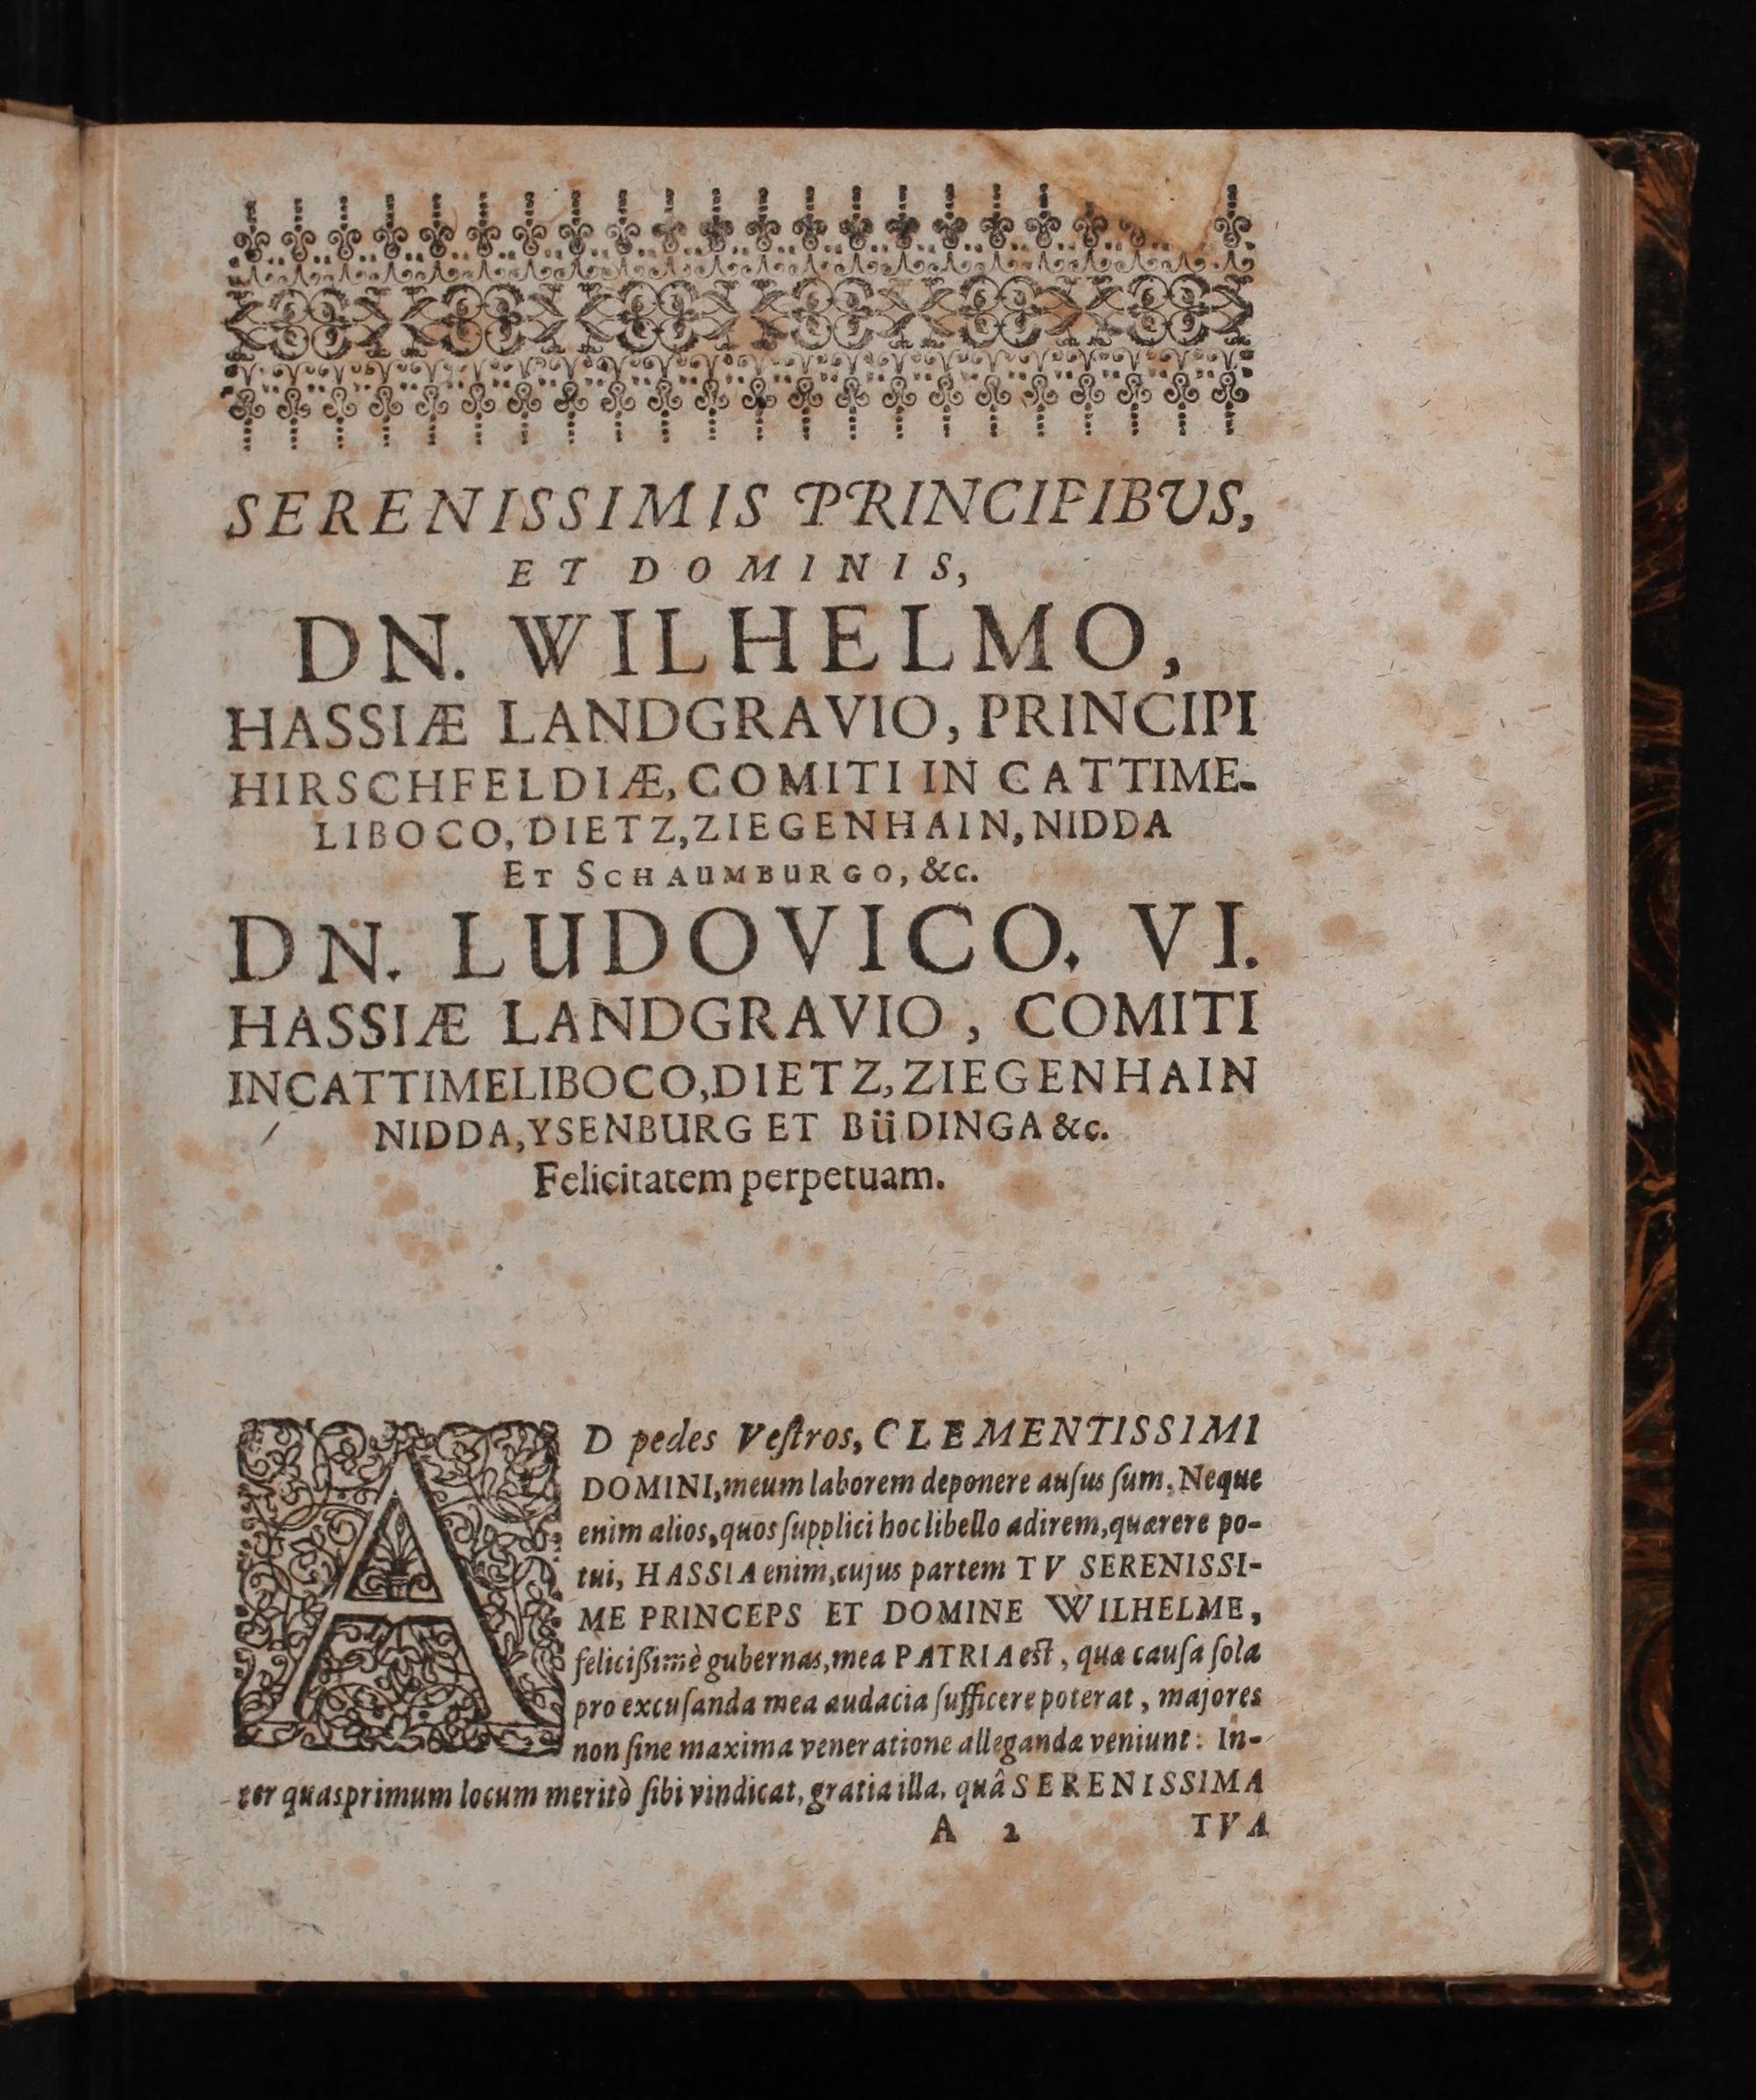 SERENISSIMIS PRINCIPIBUS,
ET DOMINIS,
DN. WILHELMO,
HASSIÆ LANDGRAVIO, PRINCIPI
HIRSCHFELDIÆ, COMITI IN CATTIME-
LIBOCO, DIETZ, ZIEGENHAIN, NIDDA
ET SCHAUMBURGO, &c.
DN. LUDOVICO. VI.
HASSIÆ LANDGRAVIO, COMITI
INCATTIMELIBOCO, DIETZ, ZIEGENHAIN
NIDDA, YSENBURG ET BüDINGA &c.
Felicitatem perpetuam.
AD pedes Veſtros, CLEMENTISSIMI
DOMINI, meum laborem deponere auſus ſum. Neque
enim alios, quos ſupplici hoc libello adirem, quærere po-
tui, HASSIA enim, cujus partem TV SERENISSI-
ME PRINCEPS ET DOMINE WILHELME,
feliciſſimè gubernas, mea PATRIA est, quæ cauſa ſola
pro excuſanda mea audacia ſufficere poterat, majores
non ſine maxima veneratione allegandæ veniunt: In-
ter quas primum locum meritò ſibi vindicat, gratia illa, quâ SERENISSIMA
A 2 TVA